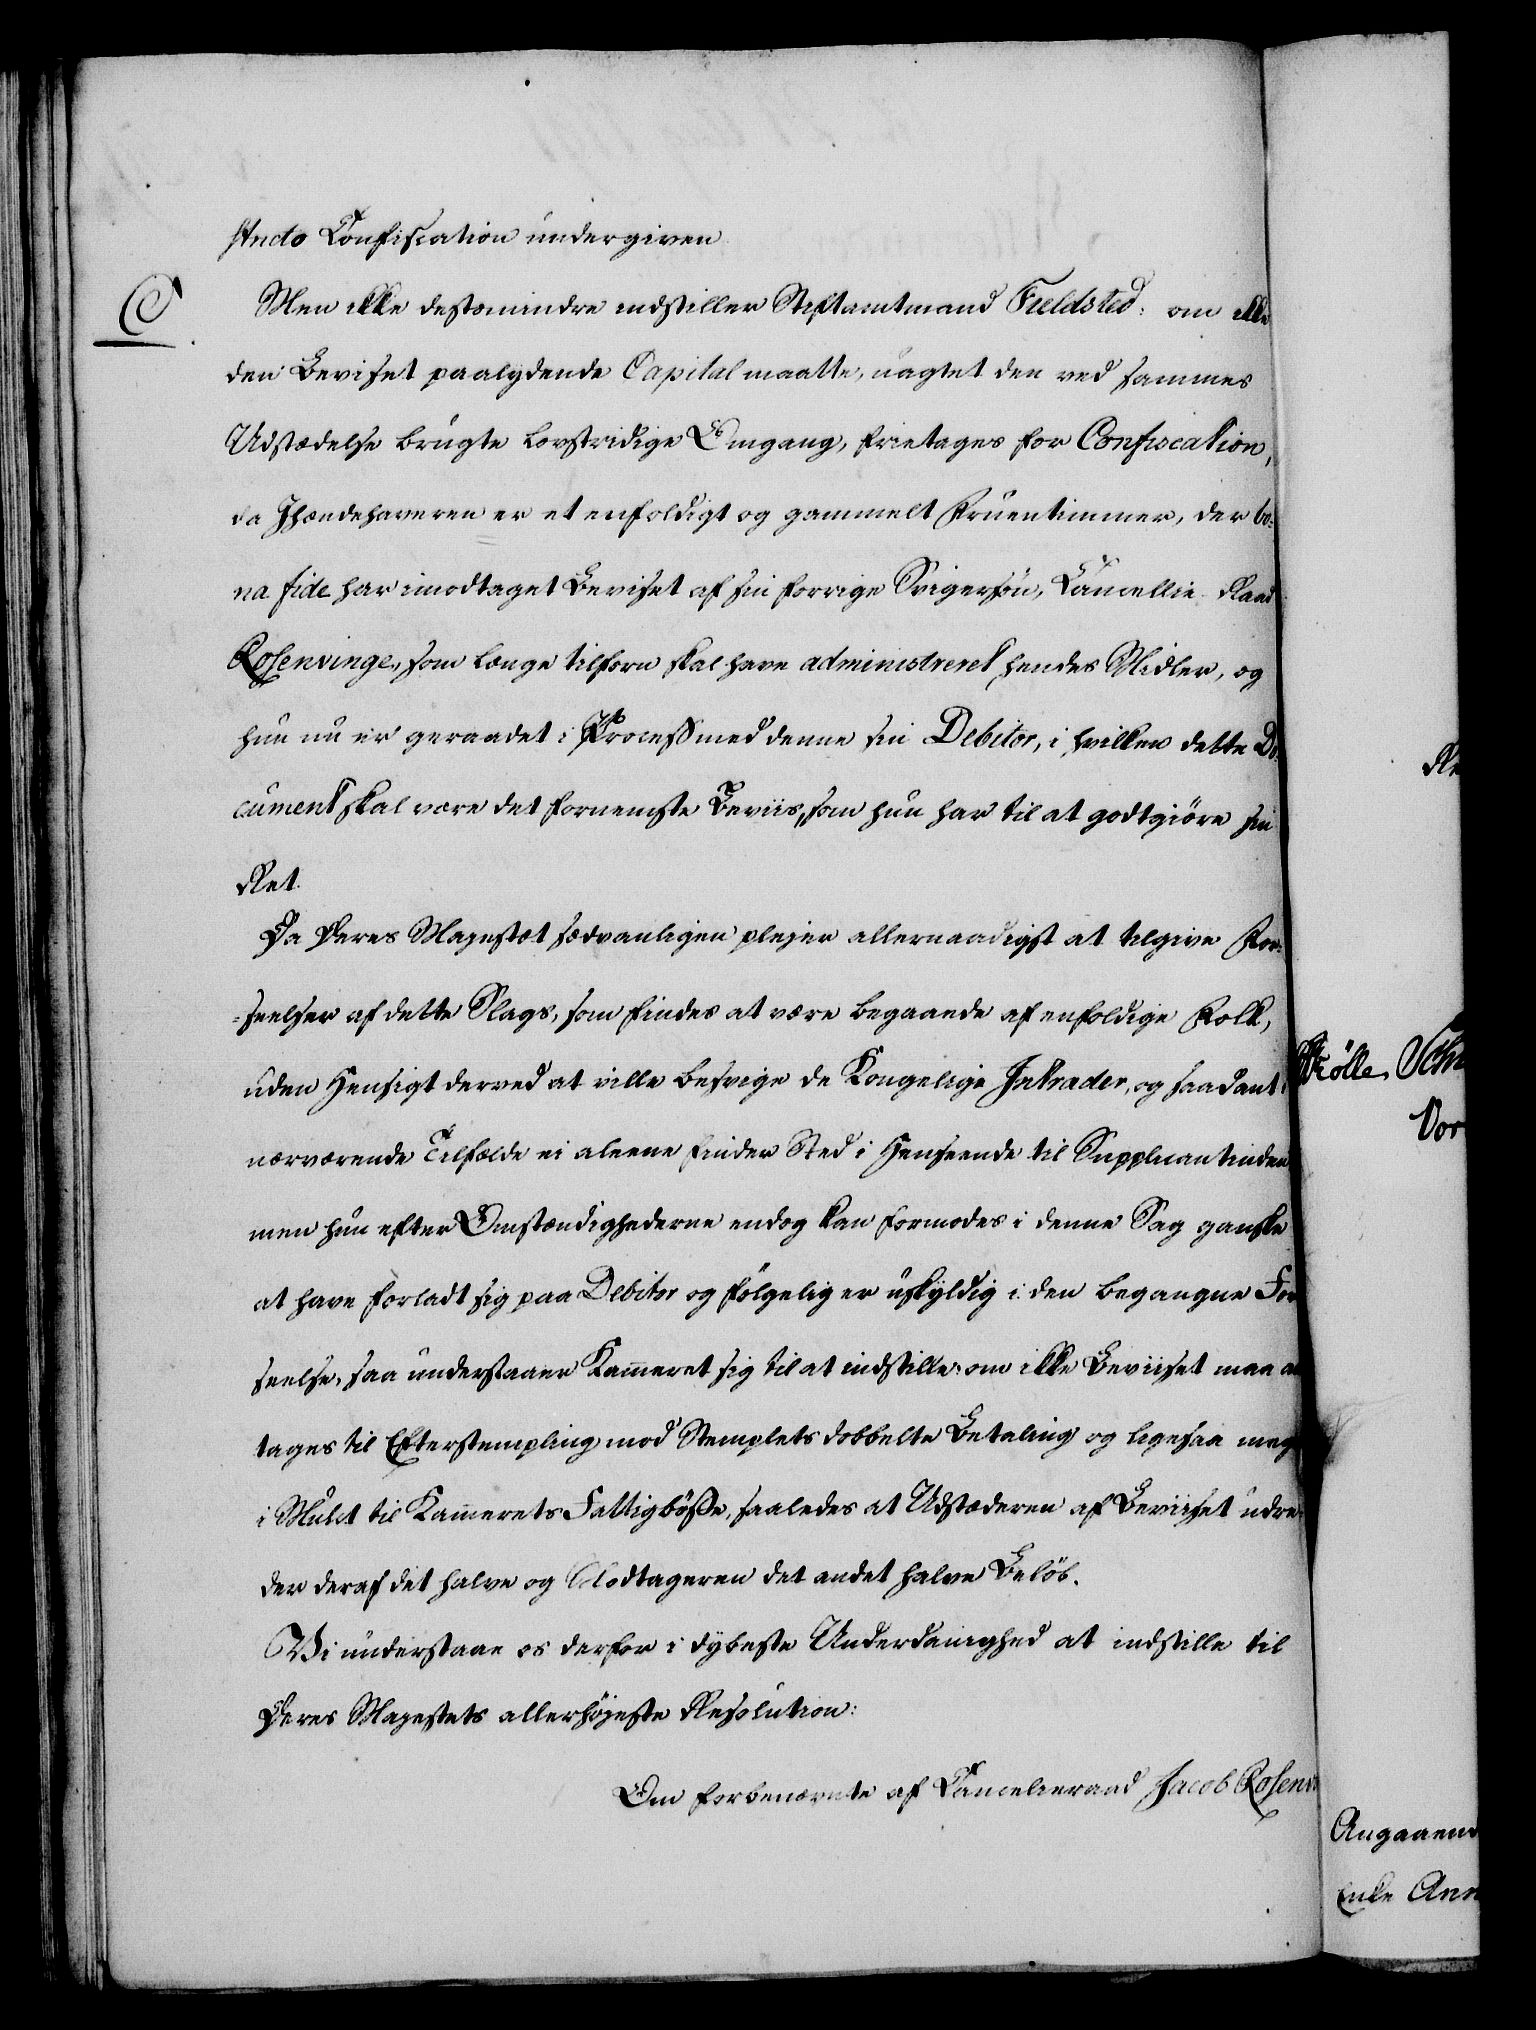 stricto Confiscation undergiven
Men ikke destomindre indstiller Stiftamtmand Fieldsted: om ikke
den Beviset paalydende Capital maatte, uagtet den ved sammes
Udstædelse brugte lovstridige Omgang, frietages for Confiscation,
da Ihændehaveren er et enfoldigt og gammelt Fruentimmer, der bo-
na fide har imodtaget Beviset af sin forrige Svigersön, Cancellie Raad
Rosenvinge, som længe tilforn skal have administreret hendes Midler, og
hun nu er geraadet i Process med denne sin Debitor, i hvilken dette Do-
cument skal være det fornemste Beviis, som hun har til at godtgiöre sin
Ret.
Da Deres Majestæt sædvanligen plejer allernaadigst at tilgive For-
-seelser af dette Slags, som findes at være begaaede af enfoldige Folk,
uden Hensigt derved at ville besvige de Kongelige Intrader, og saadant i
nærværende Tilfælde ei aleene finder Sted i Henseende til Supplicantinden
men hun efter Omstændighederne endog kan formodes i denne Sag ganske
at have forladt sig paa Debitor og fölgelig er uskyldig i den begangne For
seelse, saa understaaer Kammeret sig til at indstille: om ikke Beviiset maa an
tages til Efterstempling mod Stemplets dobbelte Betaling og ligesaa meg
i Mulct til Kammerets Fattigbösse, saaledes at Udstæderen af Beviiset udre-
der deraf det halve og Modtageren det andet halve Belöb.
Vi understaae os derfor i dybeste Underdanighed at indstille til
Deres Majestets allerhöjeste Resolution:
Om forbenævnte af Cancelieraad Jacob Rosenv